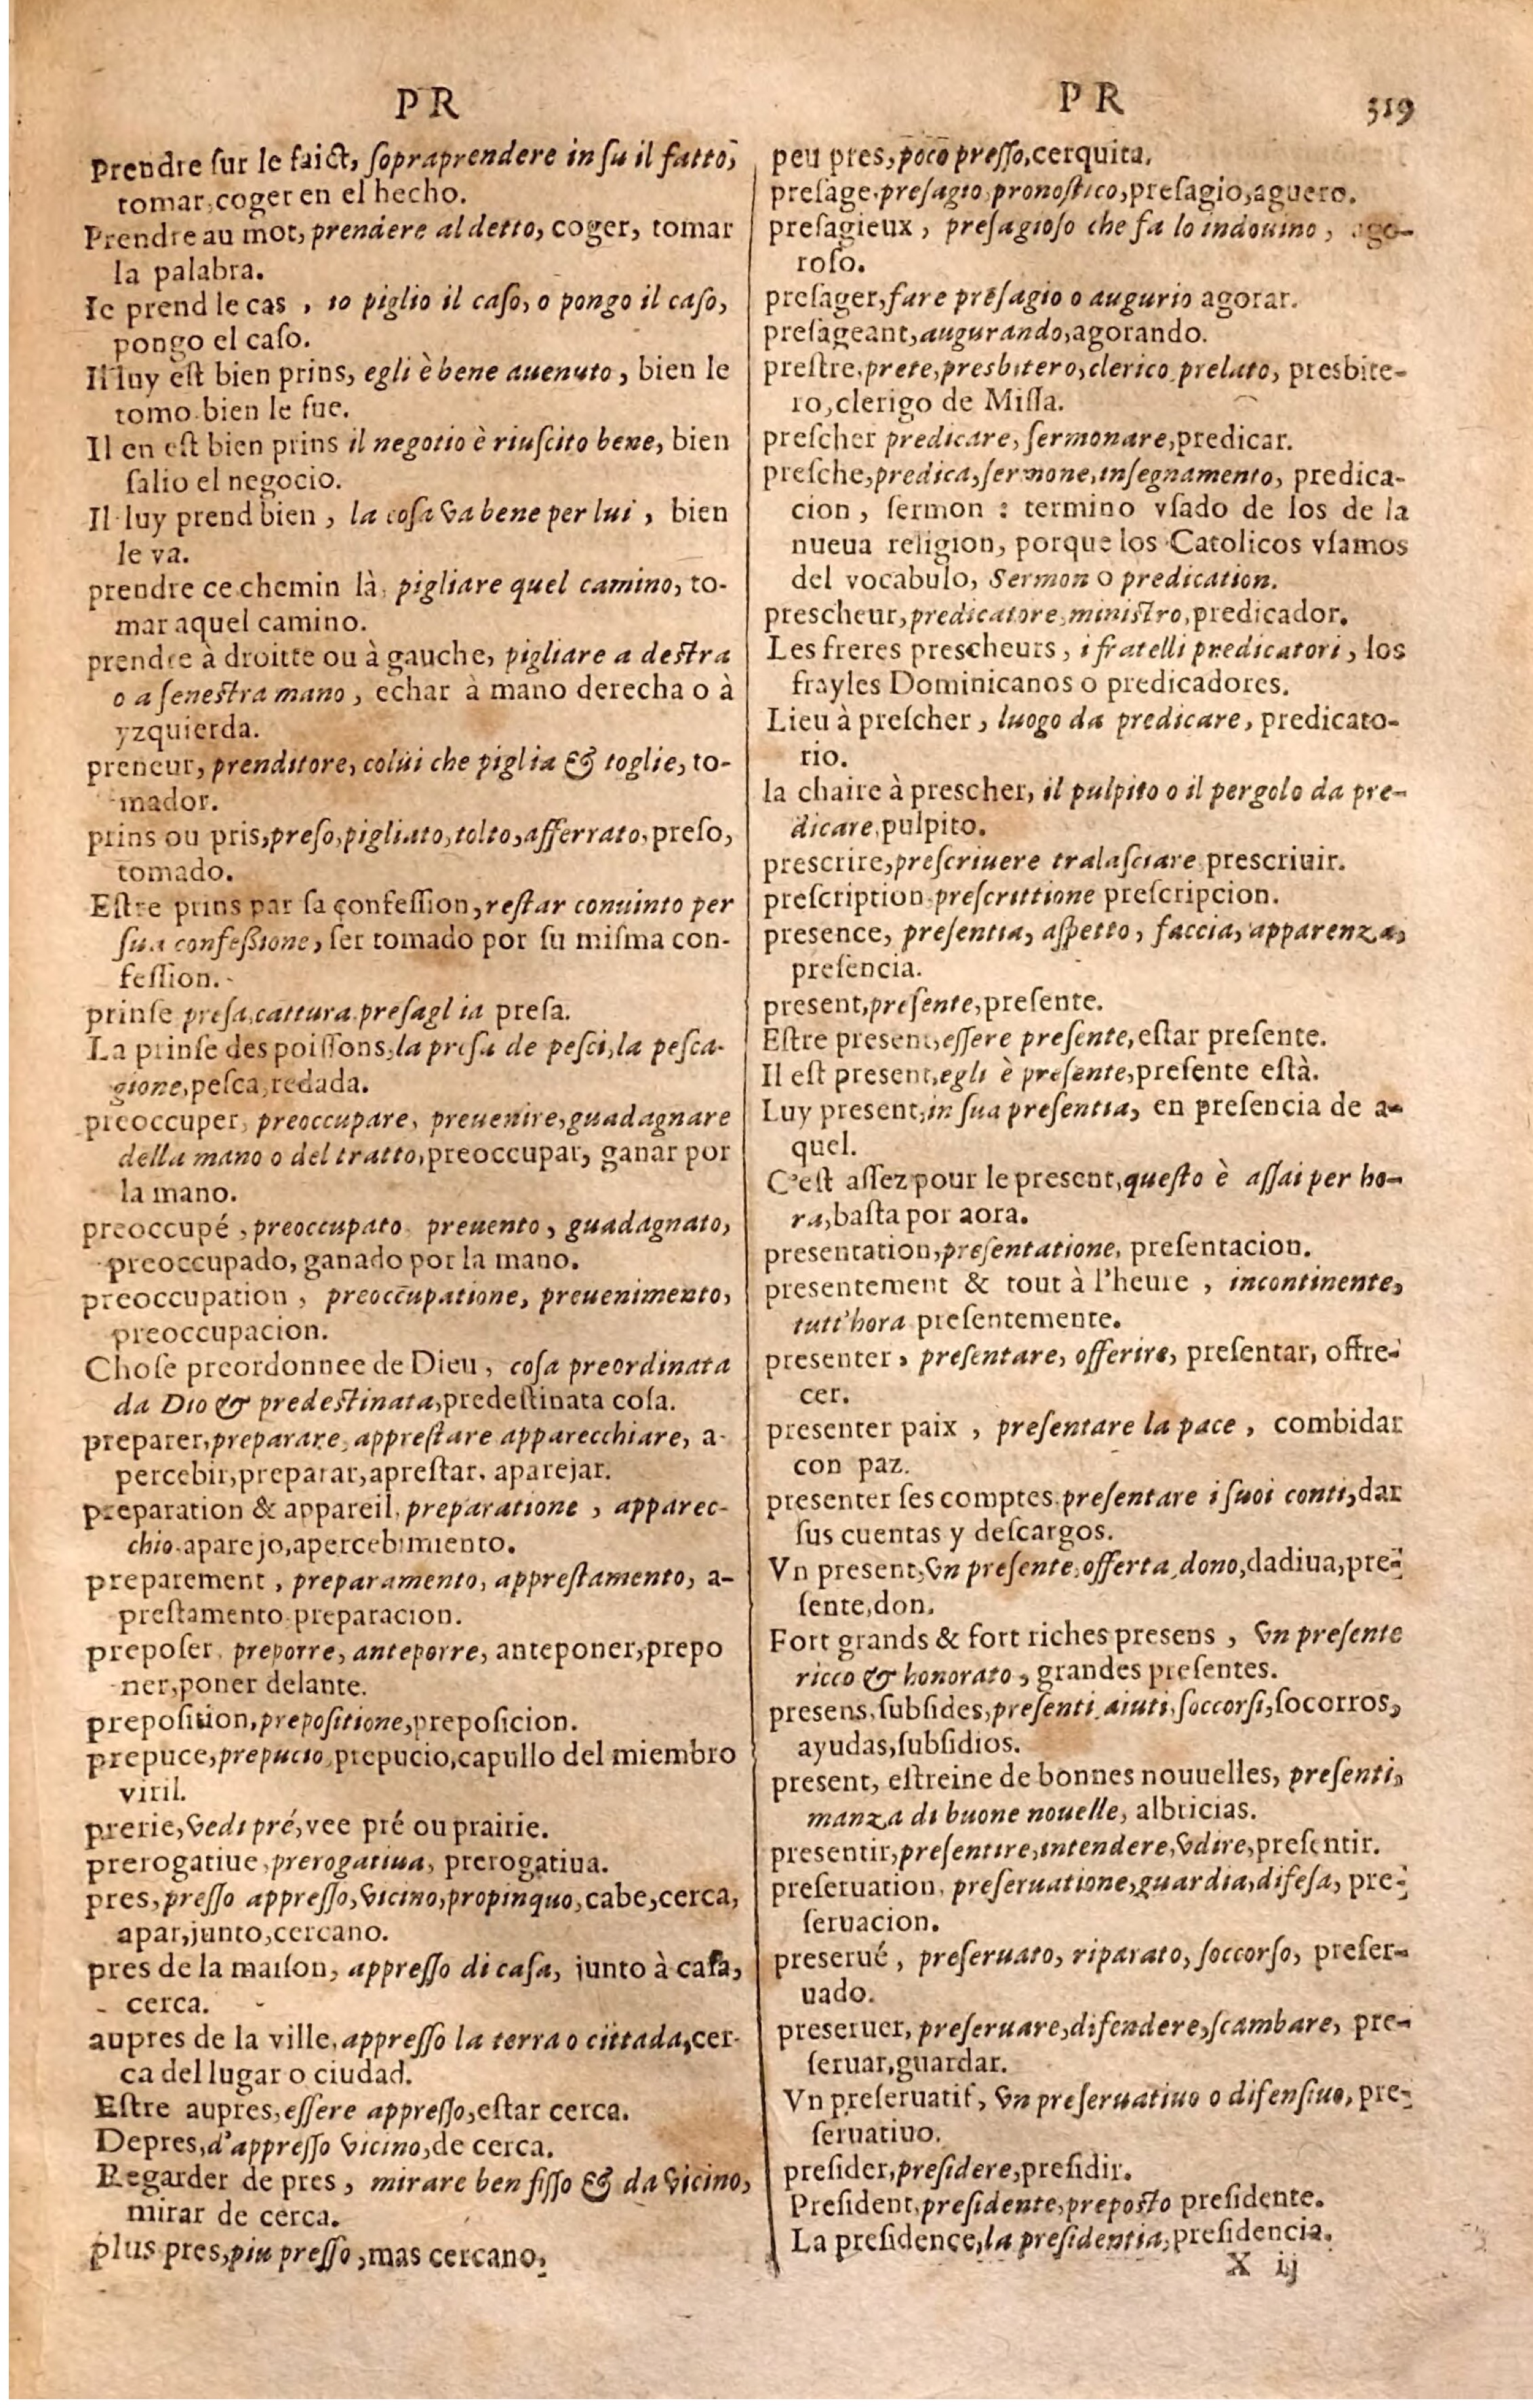 PR
Prendre sur le faict, ſopraprendere in ſu il fatto,
tomar, coger en el hecho.
Prendre au mot, prendere al detto, coger, tomar
la palabra.
Ie prend le cas, io piglio il caſo, o pongo il caſo,
pongo el caſo.
Il luy eſt bien prins, egli è bene auenuto, bien le
tomo bien le fue.
Il en eſt bien prins il negotio è riuſcito bene, bien
ſalio el negocio.
Il luy prend bien, la coſa va bene per lui, bien
le va.
prendre ce chemin là, pigliare quel camino, to-
mar aquel camino.
prendre à droitte ou à gauche, pigliare a deſtra
o a ſeneſtra mano, echar à mano derecha o à
yzquierda.
preneur, prenditore, colui che piglia & toglie, to-
mador.
prins ou pris, preſo, pigliato, tolto, afferrato, preſo,
tomado.
Eſtre prins par ſa confeſſion, reſtar conuinto per
ſua confeßione, ſer tomado por ſu miſma con-
feſſion.
prinſe preſa, cattura, preſaglia preſa.
La prinſe des poiſſons, la preſa de peſci, la peſca-
gione, peſca, redada.
preoccuper, preoccupare, preuenire, guadagnare
della mano o del tratto, preoccupar, ganar por
la mano.
preoccupé, preoccupato, preuento, guadagnato,
preoccupado, ganado por la mano.
preoccupation, preoccupatione, preuenimento,
preoccupacion.
Choſe preordonnee de Dieu, coſa preordinata
da Dio & predeſtinata, predeſtinata coſa.
preparer, preparare, appreſtare apparecchiare, a-
percebir, preparar, apreſtar, aparejar.
preparation & appareil, preparatione, apparec-
chio, aparejo, apercebimiento.
preparement, preparamento, appreſtamento, a-
preſtamento preparacion.
prepoſer, preporre, anteporre, anteponer, prepo
ner, poner delante.
prepoſition, prepoſitione, prepoſicion.
prepuce, prepucio, prepucio, capullo del miembro
viril.
prerie, vedi pré, vee pré ou prairie.
prerogatiue, prerogatiua, prerogatiua.
pres, preſſo appreſſo, vicino, propinquo, cabe, cerca,
apar, junto, cercano.
pres de la maiſon, appreſſo di caſa, junto à caſa,
cerca.
aupres de la ville, appreſſo la terra o cittada, cer-
ca del lugar o ciudad.
Eſtre aupres, eſſere appreſſo, eſtar cerca.
Depres, d'appreſſo vicino, de cerca.
Regarder de pres, mirare ben fiſſo & da vicino,
mirar de cerca.
plus pres, piu preſſo, mas cercano,
PR 319
peu pres, poco preſſo, cerquita.
preſage, preſagio, pronoſtico, preſagio, aguero.
preſagieux, preſagioſo che fa lo indouino, ago-
roſo.
preſager, fare preſagio o augurio agorar.
preſageant, augurando, agorando.
preſtre, prete, presbitero, clerico, prelato, presbite-
ro, clerigo de Miſſa.
preſcher predicare, ſermonare, predicar.
preſche, predica, ſermone, inſegnamento, predica-
cion, ſermon : termino vſado de los de la
nueua religion, porque los Catolicos vſamos
del vocabulo, Sermon o predication.
prescheur, predicatore, miniſtro, predicador.
Les freres prescheurs, i fratelli predicatori, los
frayles Dominicanos o predicadores.
Lieu à preſcher, luogo da predicare, predicato-
rio.
la chaire à prescher, il pulpito o il pergolo da pre-
dicare, pulpito.
preſcrire, preſcriuere tralaſciare preſcriuir.
preſcription preſcrittione preſcripcion.
preſence, preſentia, aſpetto, faccia, apparenza,
preſencia.
preſent, preſente, preſente.
Eſtre preſent, eſſere preſente, eſtar preſente.
Il eſt preſent, egli è preſente, preſente eſtà.
Luy preſent, in ſua preſentia, en preſencia de a-
quel.
C'eſt aſſez pour le preſent, queſto è aſſai per ho-
ra, baſta por aora.
preſentation, preſentatione, preſentacion.
preſentement & tout à l'heure, incontinente,
tutt'hora preſentemente.
preſenter, preſentare, offerire, preſentar, offre-
cer.
preſenter paix, preſentare la pace, combidar
con paz.
preſenter ſes comptes preſentare i ſuoi conti, dar
ſus cuentas y deſcargos.
Vn preſent, vn preſente, offerta, dono, dadiua, pre-
ſente, don.
Fort grands & fort riches preſens, vn preſente
ricco & honorato, grandes preſentes.
preſens, ſubſides, preſenti, aiuti, ſoccorſi, ſocorros,
ayudas, ſubſidios.
preſent, eſtreine de bonnes nouuelles, preſenti,
manza di buone nouelle, albricias.
preſentir, preſentire, intendere, vdire, preſentir.
preſeruation, preſeruatione, guardia, difeſa, pre-
ſeruacion.
preſerué, preſeruato, riparato, ſoccorſo, preſer-
uado.
preſeruer, preſeruare, difendere, ſcambare, pre-
ſeruar, guardar.
Vn preſeruatif, vn preſeruatiuo o difenſiuo, pre-
ſeruatiuo.
preſider, preſidere, preſidir.
Preſident, preſidente, prepoſto preſidente.
La preſidence, la preſidentia, preſidencia.
X ij